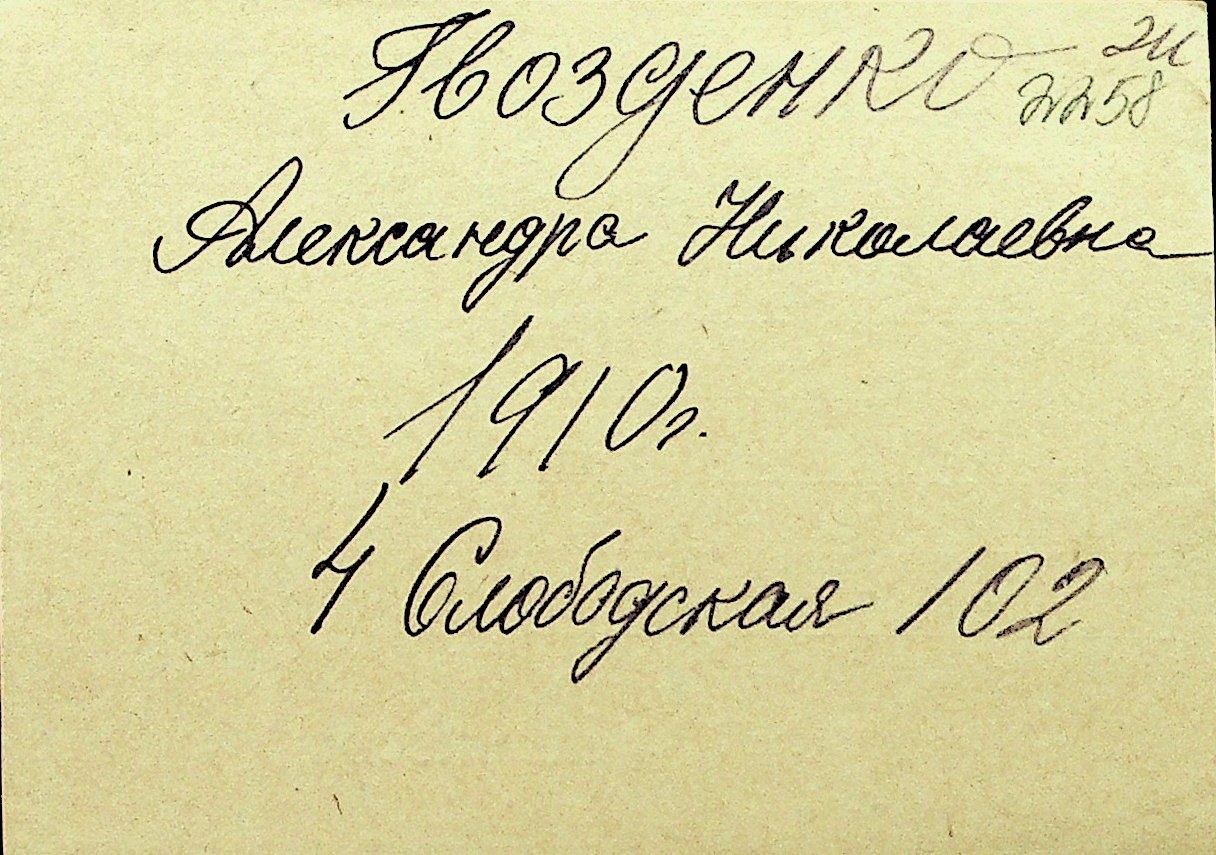 Гвозденко 2и
2258
Александра Николаевна
1910г.
4 Слободская 102